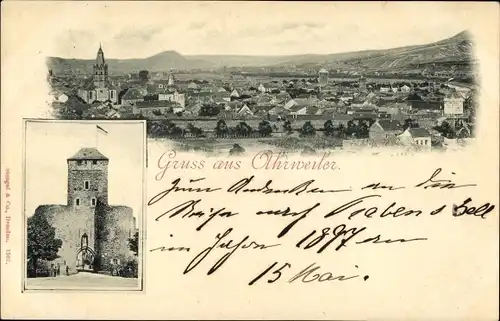 Gruss aus Ahrweiler.
Zum Andenken an die
Reise auf
im Jahre 1897 am
15 Mai.
Stengel & Co., Dresden. 1297.